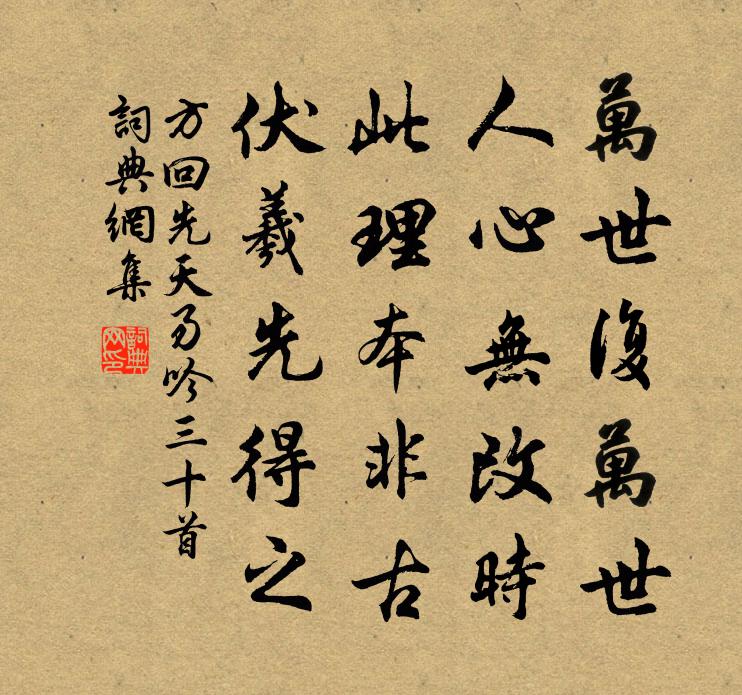 萬世復萬世
人心無改時
此理本非古
伏羲先得之
方回先天易吟三十首
詞典網集
詞典
网印